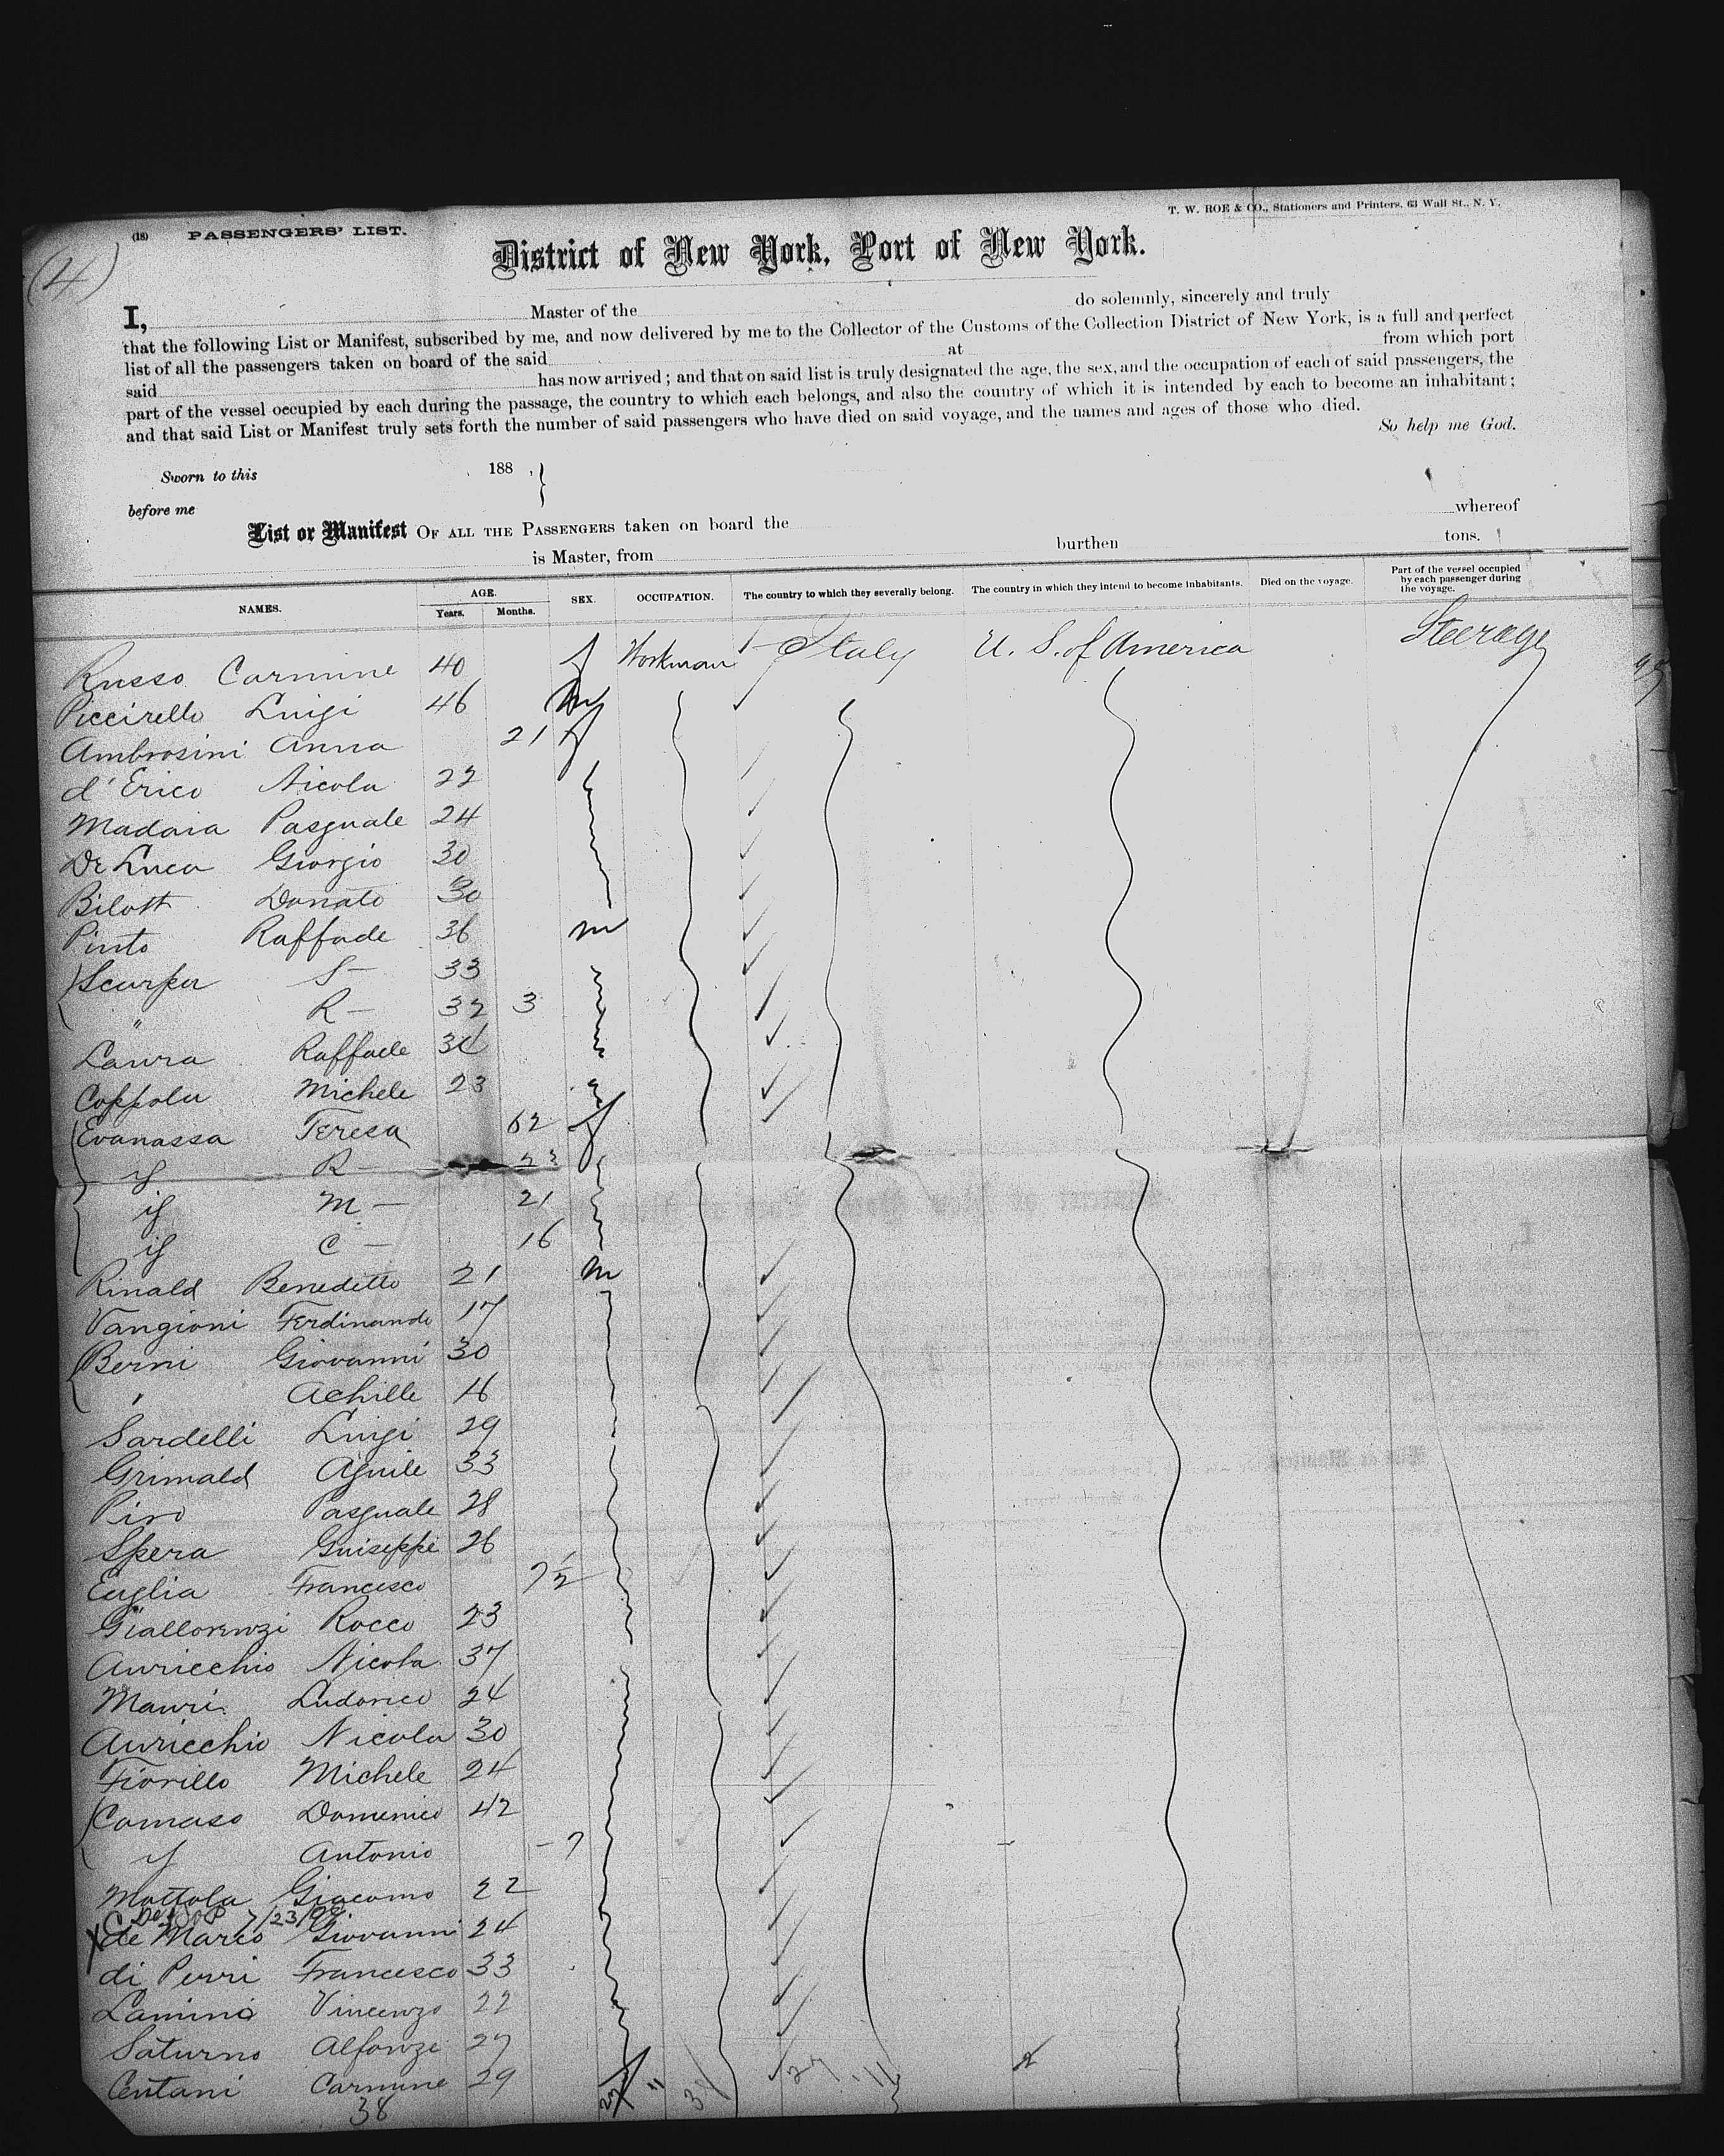 T. W. ROE & CO., Stationers and Printers, 63 Wall St., N. Y.
(18) PASSENGERS' LIST.
(4)
District of New York, Port of New York.
I, Master of the do solemnly, sincerely and truly
that the following List or Manifest, subscribed by me, and now delivered by me to the Collector of the Customs of the Collection District of New York, is a full and perfect
list of all the passengers taken on board of the said at from which port
said has now arrived; and that on said list is truly designated the age, the sex, and the occupation of each of said passengers, the
part of the vessel occupied by each during the passage, the country to which each belongs, and also the country of which it is intended by each to become an inhabitant;
and that said List or Manifest truly sets forth the number of said passengers who have died on said voyage, and the names and ages of those who died.
So help me God.
Sworn to this 188 ,
before me
List or Manifest OF ALL THE PASSENGERS taken on board the whereof
is Master, from burthen tons.
NAMES. AGE. Years. Months. SEX. OCCUPATION. The country to which they severally belong. The country in which they intend to become inhabitants. Died on the voyage. Part of the vessel occupied by each passenger during the voyage.
Russo Carmine 40 f Workman Italy U. S. of America Steerage
Piccirello Luigi 46 m
Ambrosini Anna 21 f
d'Erico Nicola 22
Madaia Pasquale 24
De Luca Giorgio 30
Bilott Donato 30
Pinto Raffaele 36 m
Scarpa S— 33
" R— 32 3
Laura Raffaele
Coppola Michele 23
Evanassa Teresa 62 f
if R—
if M— 21
if C— 16
Rinald Benedetto 21 m
Vangioni Ferdinando 17
Berni Giovanni 30
" Achille 16
Sardelli Luigi 29
Grimald 33
Piro Pasquale 28
Spera Guiseppe 26
Euglia Francesco
Giallorenzi Rocco 23
Auricchio Nicola 37
Mauri Ludovico 24
Auricchio Nicola 30
Fiorillo Michele 24
Comaso Domenico 42
if Antonio - 7
Mottola Giacomo 22
X de Marco Giovanni 24
di Perri Francesco 33
Lamino Vincenzo 22
Saturno Alfonzo 27
Centani Carmine 29
38